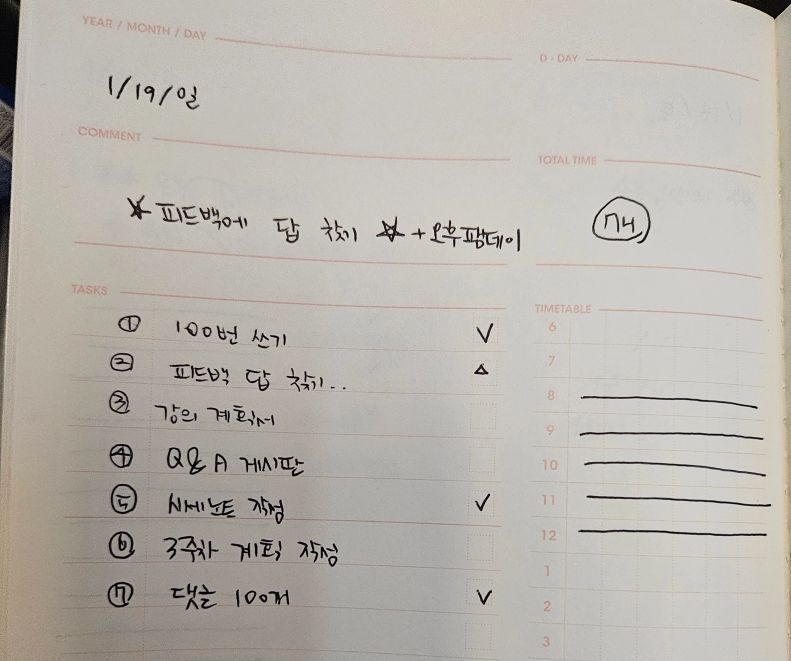 YEAR / MONTH / DAY
D-DAY
1/19/일
COMMENT
TOTAL TIME
☆ 피드백에 답 찾기 ☆ + 오후팜데이
74
TASKS
TIMETABLE
① 100번 쓰기 V
② 피드백 답 찾기.. △
③ 강의 계획서
④ Q&A 게시판
⑤ 시세노트 작성 V
⑥ 3주차 계획 작성
⑦ 댓글 100개 V
6
7
8
9
10
11
12
1
2
3